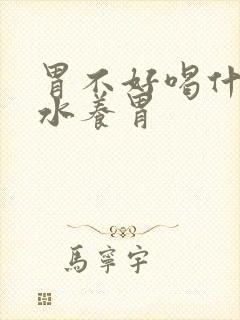 胃不好喝什
水养胃
馬寧宇